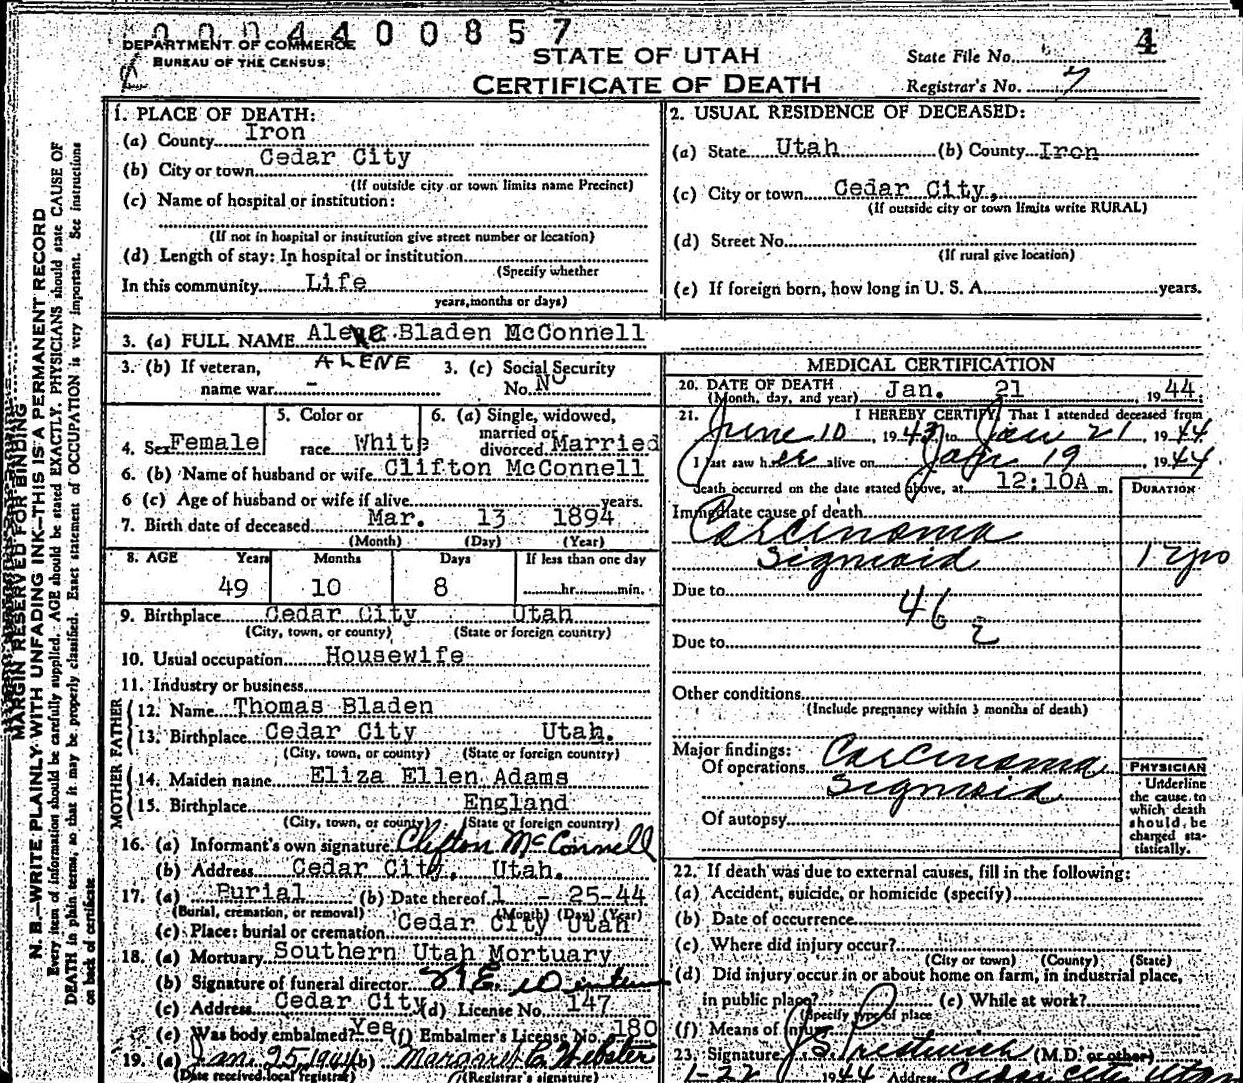 0004400857
DEPARTMENT OF COMMERCE
BUREAU OF THE CENSUS
STATE OF UTAH
CERTIFICATE OF DEATH
State File No. 4
Registrar's No. 7
MARGIN RESERVED FOR BINDING
N. B.—WRITE PLAINLY WITH UNFADING INK—THIS IS A PERMANENT RECORD
Every item of information should be carefully supplied. AGE should be stated EXACTLY. PHYSICIANS should state CAUSE OF
DEATH in plain terms, so that it may be properly classified. Exact statement of OCCUPATION is very important. See instructions
on back of certificate
1. PLACE OF DEATH:
(a) County Iron
(b) City or town Cedar City
(If outside city or town limits name Precinct)
(c) Name of hospital or institution:
(If not in hospital or institution give street number or location)
(d) Length of stay: In hospital or institution
(Specify whether
In this community Life
years, months or days)
2. USUAL RESIDENCE OF DECEASED:
(a) State Utah (b) County Iron
(c) City or town Cedar City,
(If outside city or town limits write RURAL)
(d) Street No.
(If rural give location)
(e) If foreign born, how long in U. S. A. years.
3. (a) FULL NAME Bladen McConnell
ALENE
3. (b) If veteran,
name war -
3. (c) Social Security
No. No
4. Sex Female
5. Color or
race White
6. (a) Single, widowed,
married or
divorced Married
6. (b) Name of husband or wife Clifton McConnell
6 (c) Age of husband or wife if alive years.
7. Birth date of deceased Mar. 13 1894
(Month) (Day) (Year)
8. AGE Years Months Days If less than one day
49 10 8 hr. min.
9. Birthplace Cedar City Utah
(City, town, or county) (State or foreign country)
10. Usual occupation Housewife
11. Industry or business
FATHER
12. Name Thomas Bladen
13. Birthplace Cedar City Utah.
(City, town, or county) (State or foreign country)
MOTHER
14. Maiden name Eliza Ellen Adams
15. Birthplace England
(City, town, or county) (State or foreign country)
16. (a) Informant's own signature Clifton McConnell
(b) Address Cedar City, Utah.
17. (a) Burial (b) Date thereof 1 - 25-44
(Burial, cremation, or removal) (Month) (Day) (Year)
(c) Place: burial or cremation Cedar City Utah
18. (a) Mortuary Southern Utah Mortuary
(b) Signature of funeral director
(c) Address Cedar City (d) License No. 147
(e) Was body embalmed? Yes (f) Embalmer's License No. 180
19. (a) Jan. 25, 1944 (b) Margaret C. Webster
(Date received local registrar) (Registrar's signature)
MEDICAL CERTIFICATION
20. DATE OF DEATH
(Month, day, and year) Jan. 21, 1944;
21. I HEREBY CERTIFY, That I attended deceased from
June 10, 1943, to Jan 21, 1944.
I last saw her alive on Jan 19, 1944
death occurred on the date stated above, at 12:10A m.
DURATION
Immediate cause of death
Carcinoma
Sigmoid
Due to
46
Due to
Other conditions
(Include pregnancy within 3 months of death)
Major findings:
Of operations Carcinoma
Sigmoid
Of autopsy
PHYSICIAN
Underline
the cause to
which death
should be
charged sta-
tistically.
22. If death was due to external causes, fill in the following:
(a) Accident, suicide, or homicide (specify)
(b) Date of occurrence
(c) Where did injury occur?
(City or town) (County) (State)
(d) Did injury occur in or about home on farm, in industrial place,
in public place? (e) While at work?
(Specify type of place
(f) Means of injury
23. Signature J. S. Prestwich (M.D. or other)
1-22 1944 Address Cedar City Utah